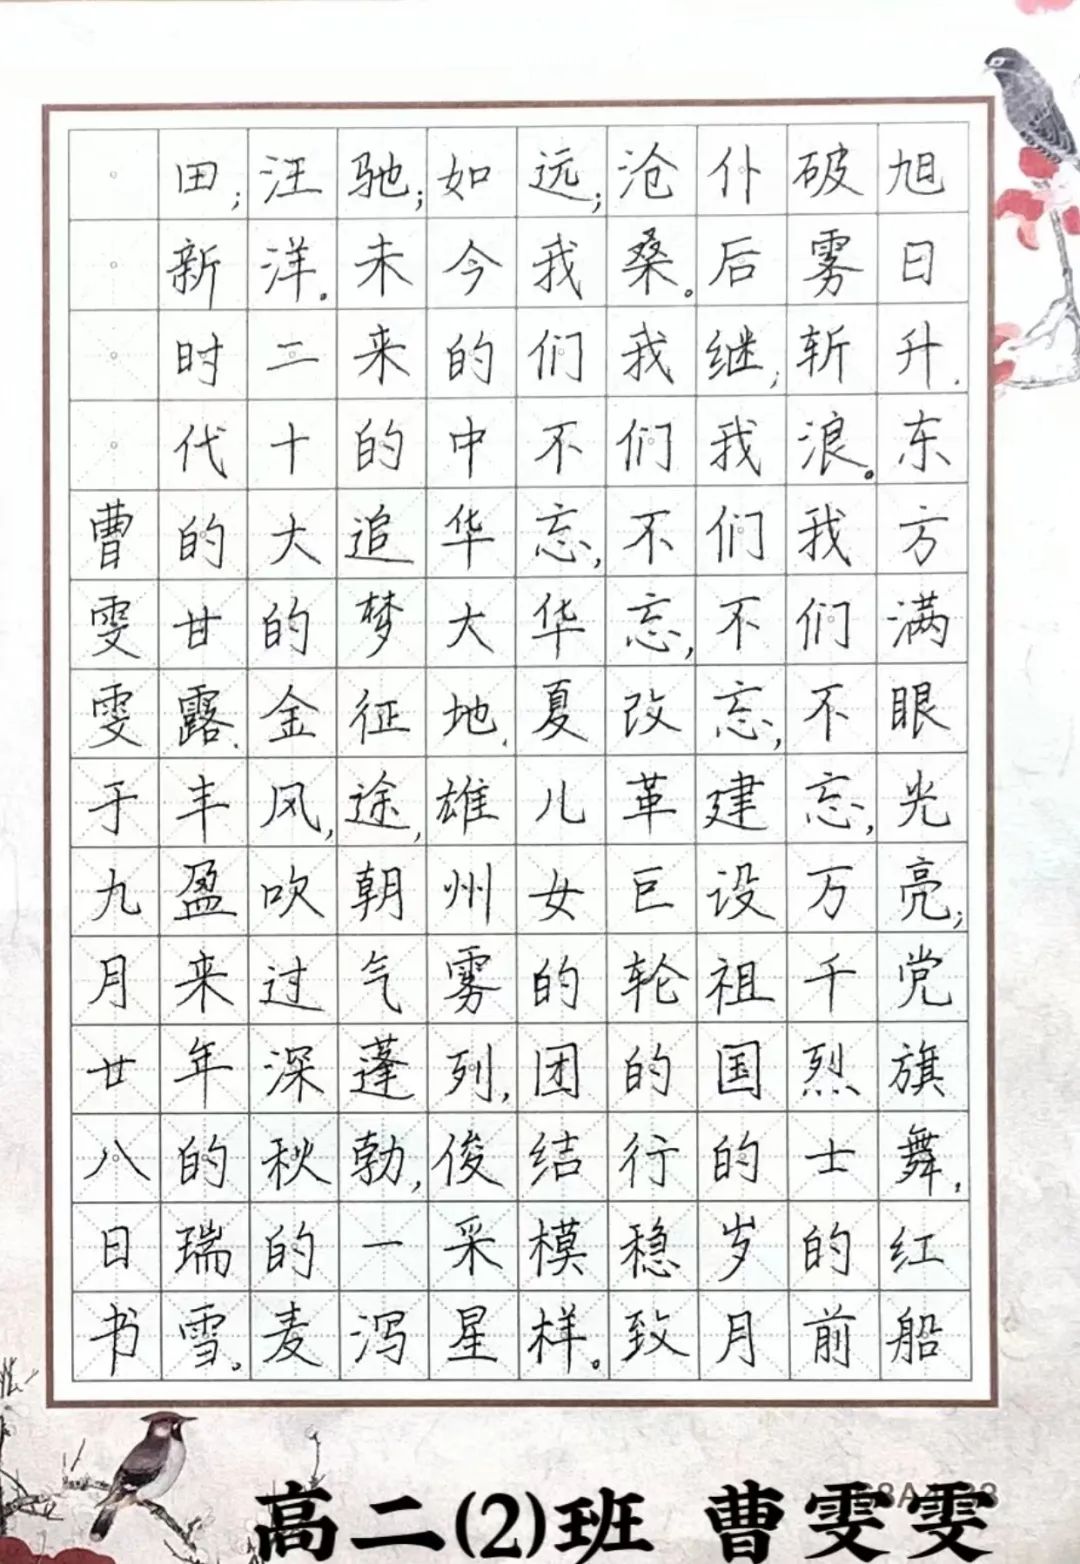 旭日升，东方满眼光亮；党旗舞，红船
破雾斩浪。我们不忘，万千烈士的前
仆后继，我们不忘，建设祖国的岁月
沧桑。我们不忘，改革巨轮的行稳致
远；我们不忘，华夏儿女的团结模样。
如今的中华大地，雄州雾列，俊采星
驰；未来的追梦征途，朝气蓬勃，一泻
汪洋。二十大的金风，吹过深秋的麦
田；新时代的甘露，丰盈来年的瑞雪。
曹雯雯于九月廿八日书
高二(2)班 曹雯雯